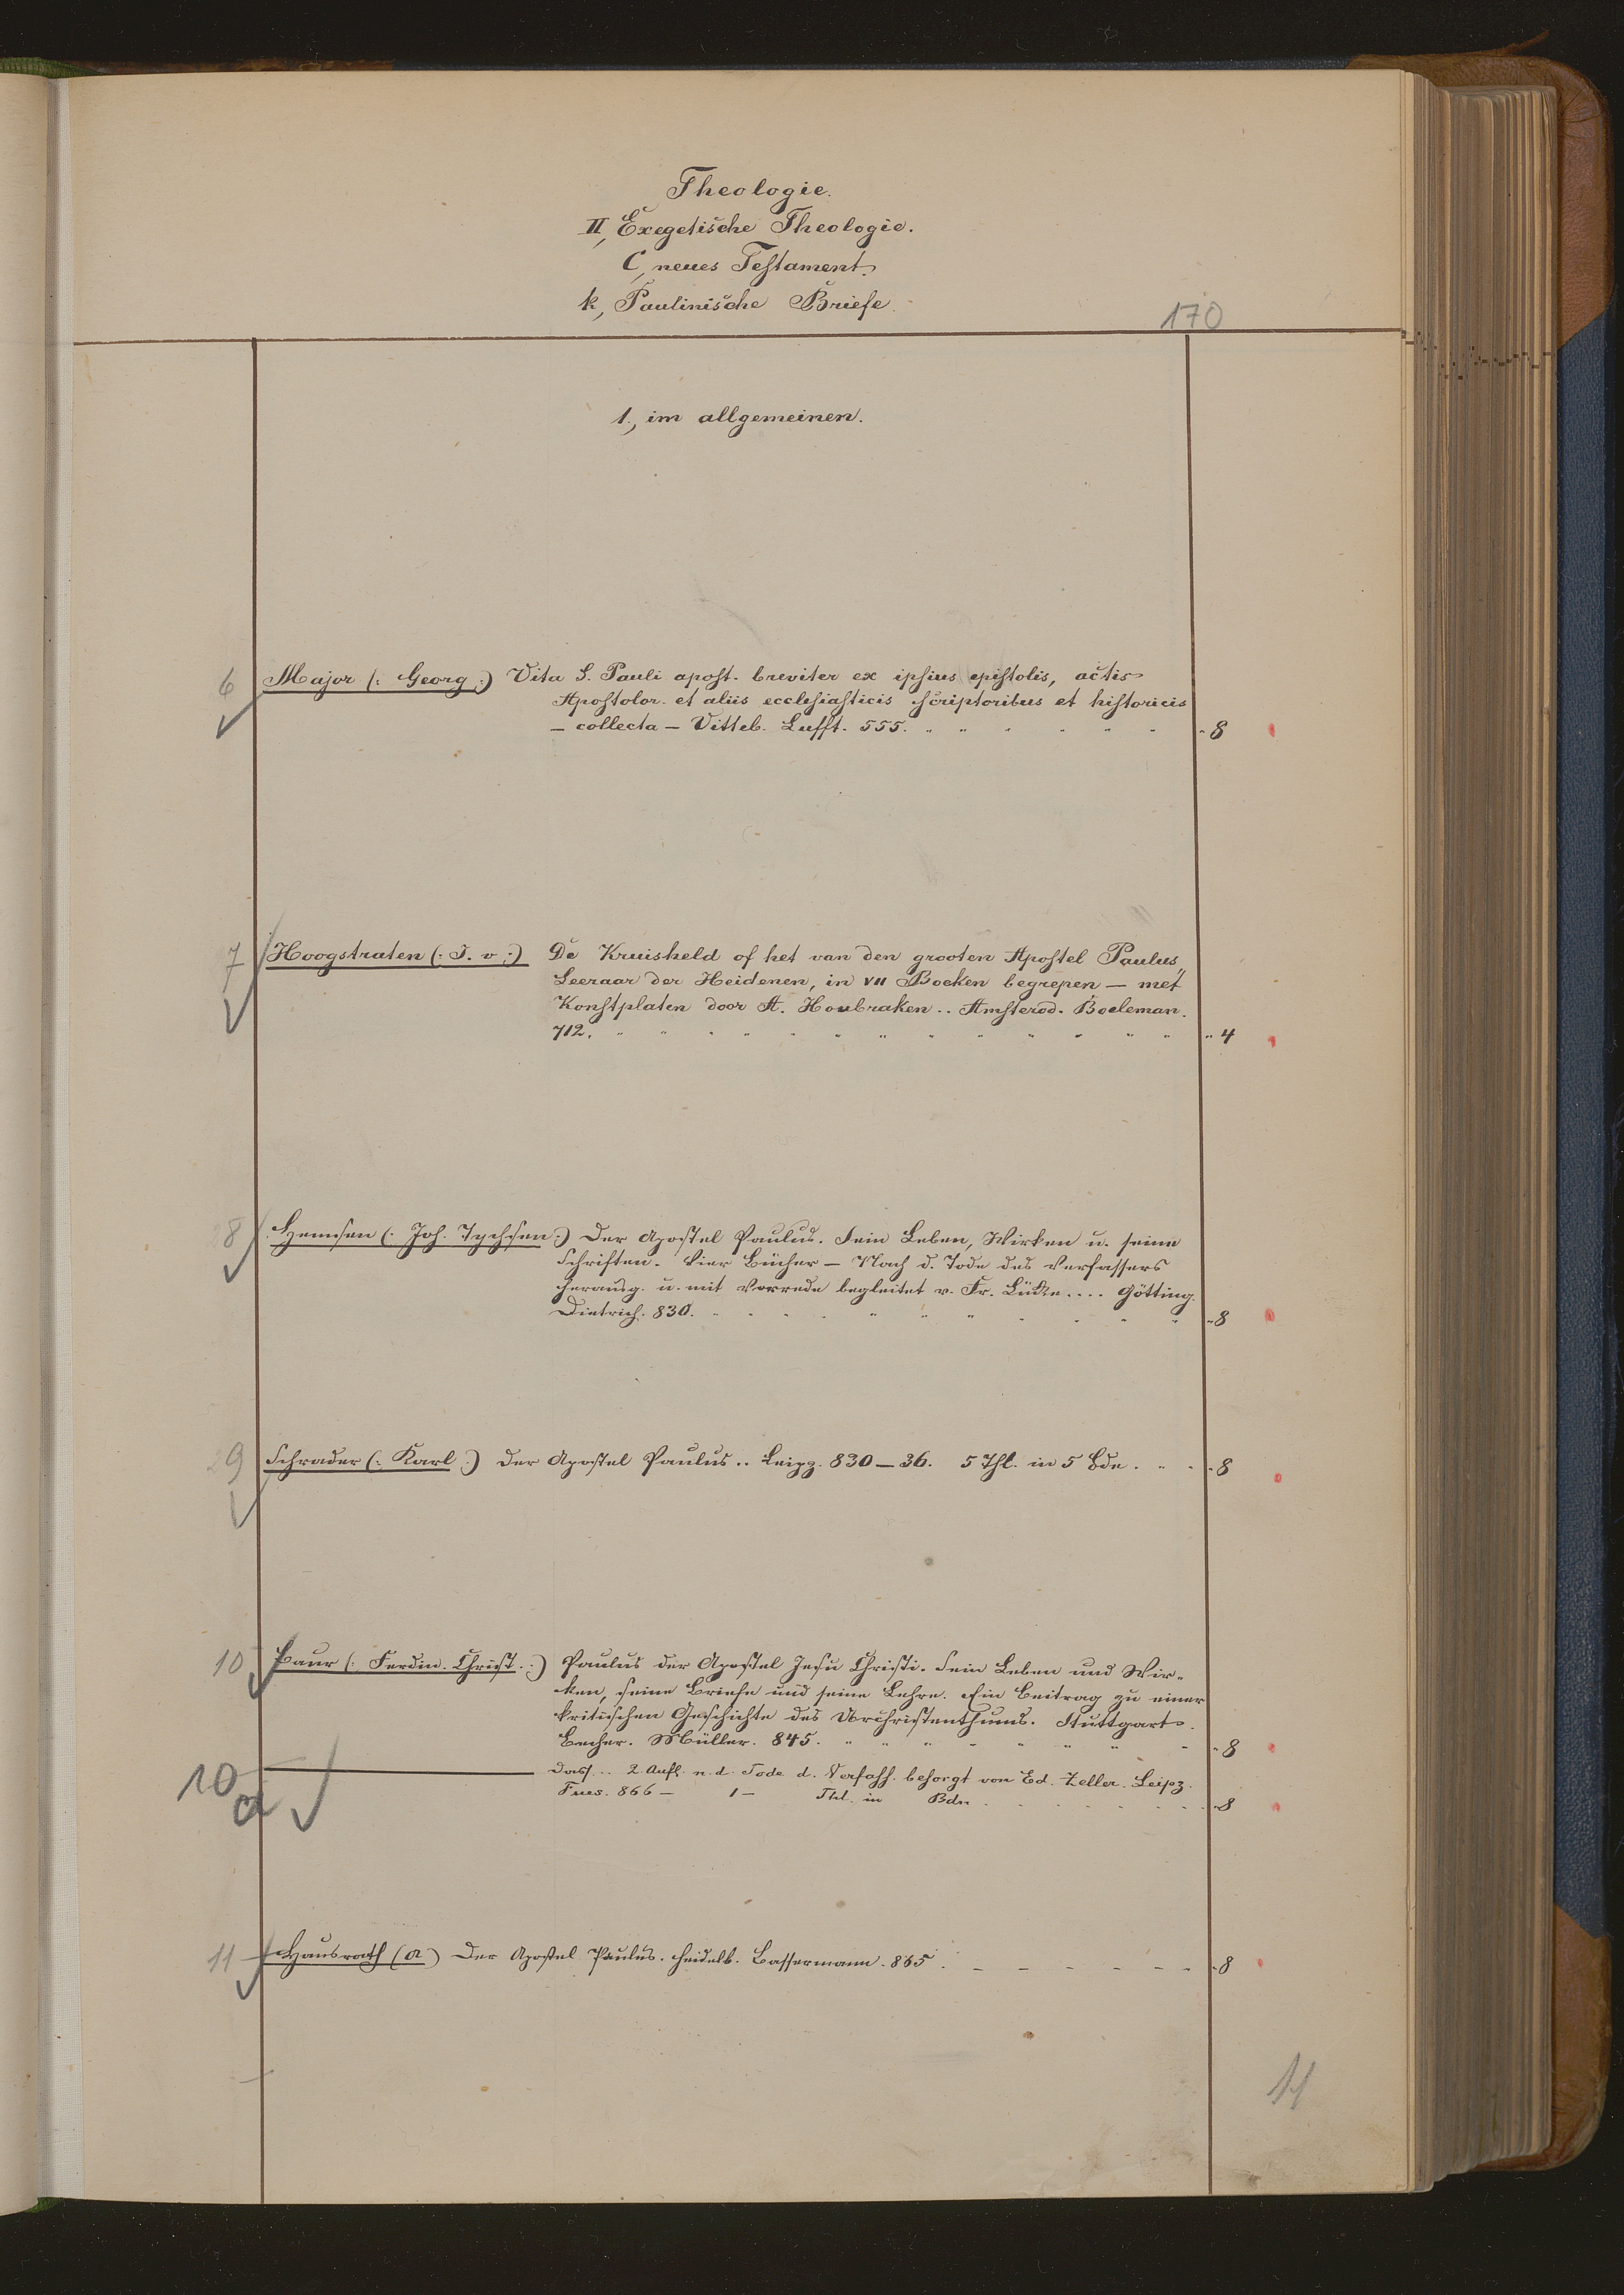 Theologie.
II, Exegetische Theologie.
C, neues Testament.
k, Paulinische Briefe.
170
1., im allgemeinen.
6 Major (: Georg :) Vita S. Pauli apost. breviter ex ipsius epistolis, actis
Apostolor. et aliis ecclesiasticis scriptoribus et historicis
— collecta — Vitteb. Lufft. 555. " 8
7 Hoogstraten (: J. v :) De Kruisheld of het van den grooten Apostel Paulus,
Leeraar der Heidenen, in VII Boeken begrepen — met
Konstplaten door A. Houbraken .. Amsterod. Boeleman.
712. " 4
8 Hemsen (: Joh. Tychsen :) Der Apostel Paulus. Sein Leben, Wirken u. seine
Schriften. Vier Bücher — Nach d. Tode des Verfassers
herausg. u. mit Vorrede begleitet v. Fr. Lücke .... Götting.
Dietrich. 830. " 8
9 Schrader (: Karl :) Der Apostel Paulus .. Leipz. 830—36. 5 Thl. in 5 Bde. " 8
10 Baur (: Ferdin. Christ. :) Paulus der Apostel Jesu Christi. Sein Leben und Wir-
ken, seine Briefe und seine Lehre. Ein Beitrag zu einer
kritischen Geschichte des Urchristenthums. Stuttgart.
Becher. Müller. 845. " 8
10a ——— Dass... 2 Aufl. n. d. Tode d. Verfass. besorgt von Ed. Zeller. Leipz.
Fues. 866 — 1 — Thl. in Bdn " 8
11 Hausrath (A) Der Apostel Paulus. Heidelb. Bassermann. 865. " 8
11